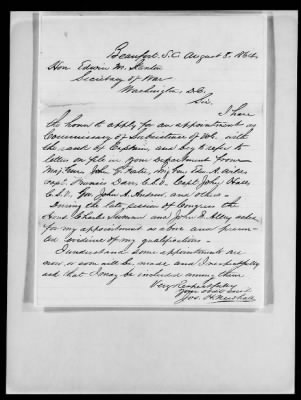 Beaufort, S.C. August 8. 1864.
Hon Edwin M. Stanton
Secretary of War
Washington D.C.
Sir.
I have
the honor to apply for an appointment as
Commissary of Subsistence of Vols. with
the rank of Captain, and beg to refer to
letters on file in your department from
Maj. Genl. John G.
Capt. Francis C.S.V. Capt. John
C.S.V. Gov. John A. Andrew, and others.
During the late session of Congress the
Hons Charles Sumner and John B. Alley asked
for my appointment as above and
evidence of my qualifications.
I understand some appointments are
now, or soon will be made and I respectfully
ask that I may be included among them
Very Respectfully
Your obdt servt
Jos. H.